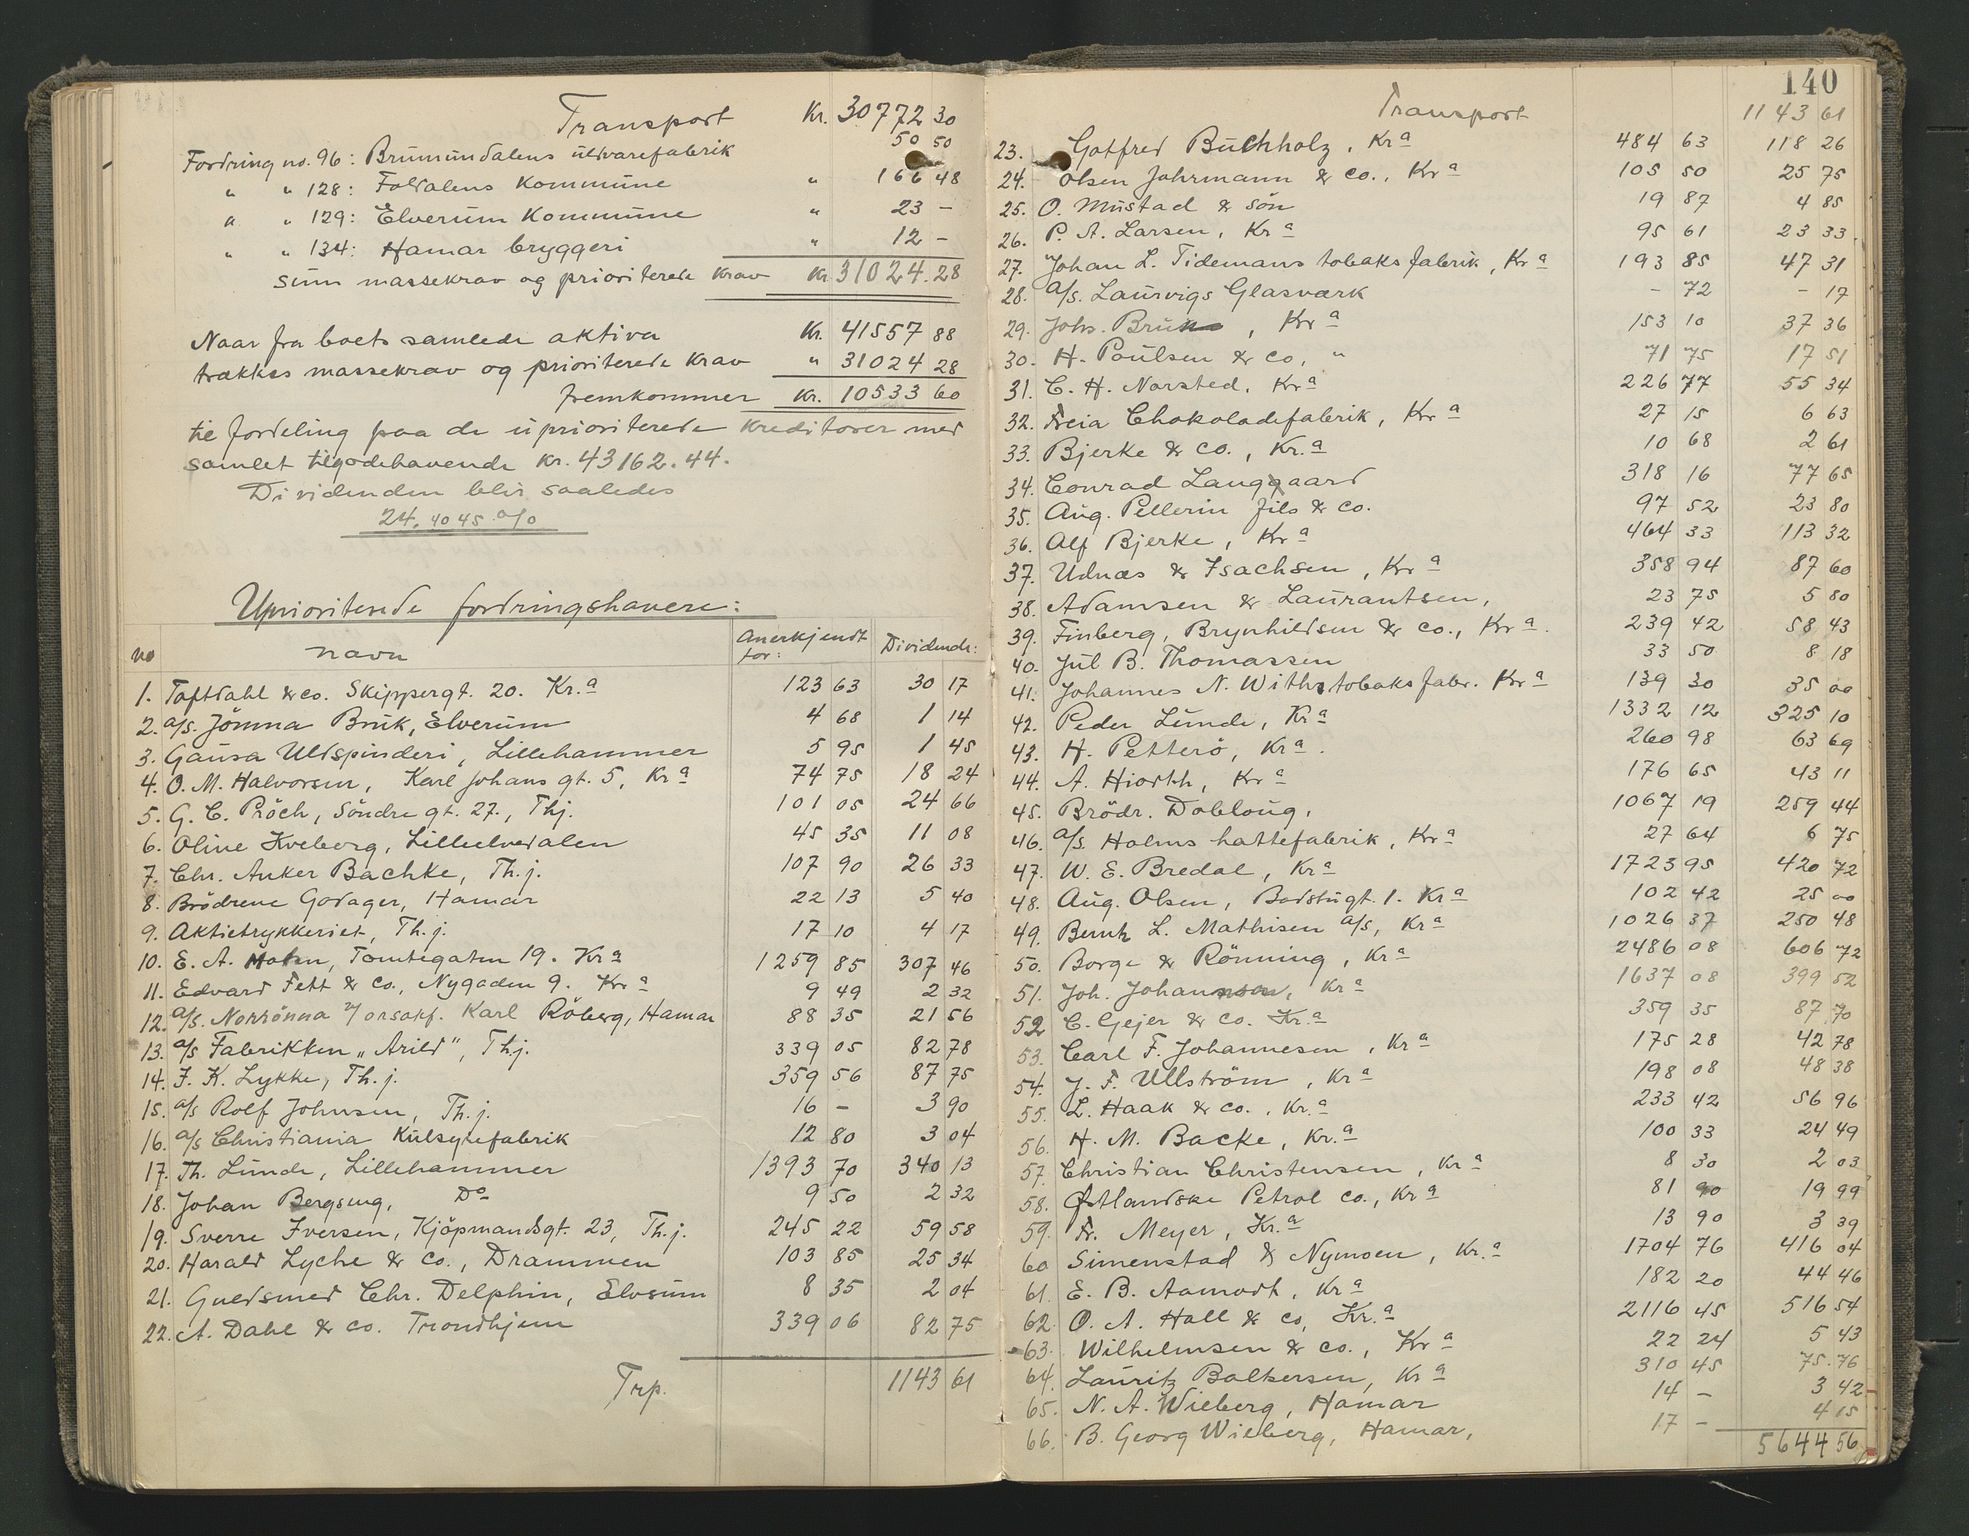 Transport Kr. 30772 30
Fordring no. 96: Brumunddalens uldvarefabrik 50 50
" " 128: Foldalens Kommune " 166 48
" " 129: Elverum Kommune " 23 -
" " 134: Hamar bryggeri " 12 -
Sum massekrav og prioriterede krav Kr 31024.28
Naar fra boets samlede aktiva Kr. 41557 88
trækkes massekrav og prioriterede krav " 31024 28
fremkommer Kr. 10533 60
til fordeling paa de uprioriterede kreditorer med
samlet tilgodehavende Kr. 43162.44.
Dividenden blir saaledes
24,4045 o/o
Uprioriterede fordringshavere:
no navn Anerkjendt for: Dividende:
1. Toftdahl & co. Skippergt. 20. Kr.a 123 63 30 17
2. a/s. Jömna Bruk, Elverum 4 68 1 14
3. Gausa Uldspinderi, Lillehammer 5 95 1 45
4. O. M. Halvorsen, Karl Johans gt. 5, Kra 74 75 18 24
5. G. C. Pröch, Söndre gt. 27., Thj. 101 05 24 66
6. Oline Kveberg, Lilleelvedalen 45 35 11 08
7. Chr. Anker Bachke, Th.j. 107 90 26 33
8. Brödrene Godager, Hamar 22 13 5 40
9. Aktietrykkeriet, Th.j. 17 10 4 17
10. E. A. Tomtegaten 19. Kra 1259 85 307 46
11. Edvard Fett & Co., Nygaden 9. Kra 9 49 2 32
12. a/s. Norrönna v/ orsakf. Karl Röberg, Hamar 88 35 21 56
13. a/s Fabrikken "Arild", Thj. 339 05 82 78
14. F. K. Lykke, Th.j. 359 56 87 75
15. a/s Rolf Johnsen, Th.j. 16 - 3 90
16. a/s Christiania Kulsyrefabrik 12 80 3 04
17. Th. Lunde, Lillehammer 1393 70 340 13
18. Johan Bergseng, Do 9 50 2 32
19. Sverre Iversen, Kjöpmandsgt. 23, Th.j. 245 22 59 58
20. Harald Lyche & Co., Drammen 103 85 25 34
21. Guldsmed Chr. Delphin, Elverum 8 35 2 04
22. A. Dahl & co. Trondhjem 339 06 82 75
Trp. 1143 61
140
Transport 1143 61
23. Gotfred Buchholz, Kra 484 63 118 26
24. Olsen Jahrmann & co., Kra 105 50 25 75
25. O. Mustad & sön 19 87 4 85
26. P. A. Larsen, Kra 95 61 23 33
27. Johan L. Tidemans tobaksfabrik, Kra 193 85 47 31
28. a/s. Laurvigs Glasværk - 72 - 17
29. Johs. Brun, Kra 153 10 37 36
30. H. Poulsen & co, " 71 75 17 51
31. C. H. Norsted, Kra 226 77 55 34
32. Freia Chokoladefabrik, Kra 27 15 6 63
33. Bjerke & co., Kr.a 10 68 2 61
34. Conrad Langgaard 318 16 77 65
35. Aug. Pellerin fils & co. 97 52 23 80
36. Alf Bjerke, Kra 464 33 113 32
37. Udnæs & Isachsen, Kra 358 94 87 60
38. Adamsen & Laurantsen, 23 75 5 80
39. Finberg, Brynhildsen & co., Kra. 239 42 58 43
40. Jul B. Thomassen 33 50 8 18
41. Johannes N. Withs tobaksfabr. Kra 139 30 35 00
42. Peder Lunde, Kra 1332 12 325 10
43. H. Petterö, Kra. 260 98 63 69
44. A. Hiorth, Kra 176 65 43 11
45. Brödr. Dobloug, 1067 19 259 44
46. a/s. Holms hattefabrik, Kra 27 64 6 75
47. W. E. Bredal, Kra 1723 95 420 72
48. Aug. Olsen, Badstugt. 1. Kra 102 42 25 00
49. Bernh L. Mathisen a/s, Kra 1026 37 250 48
50. Borge & Rönning, Kra 2486 08 606 72
51. Joh. Johannson, Kra 1637 08 399 52
52 C. Gejer & co. Kr.a 359 35 87 70
53. Carl F. Johannesen, Kra 175 28 42 78
54. J. F. Ullström, Kra 198 08 48 38
55. L. Haak & co., Kr.a 233 42 56 96
56. H. M. Backe, Kr.a 100 33 24 49
57. Christian Christensen, Kra 8 30 2 03
58. Østlandske Petrol co., Kra 81 90 19 99
59. Fr. Meyer, Kr.a 13 90 3 39
60 Simenstad & Nymoen, Kr.a 1704 76 416 04
61. E. B. Aamodt, Kra 182 20 44 46
62. O. A. Hall & co, Kr.a 2116 45 516 54
63. Wilhelmsen & co., Kra 22 24 5 43
64. Lauritz Baltersen, Kra 310 45 75.76
65. N. A. Wieberg, Hamar 14 - 3 42
66. B. Georg Wieberg, Hamar, 17 - 4 15
5644 56